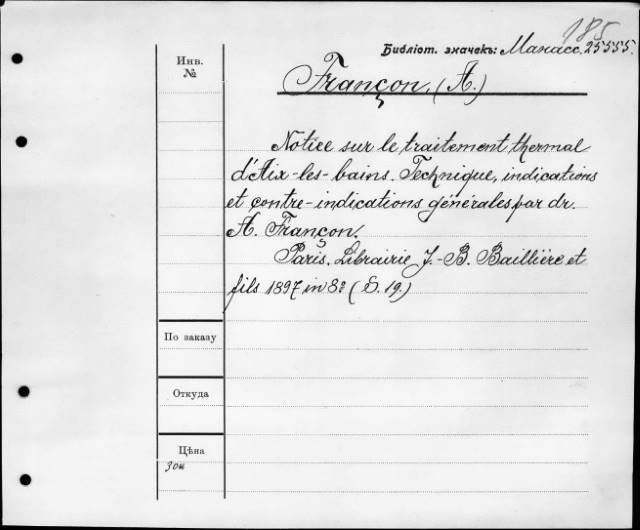 185
Библіот. значекъ: Манасс. 25555.
Инв.
№
Françon. (A.)
Notice sur le traitement thermal
d'Aix-les-bains. Technique, indications
et contre-indications générales par dr.
A. Françon.
Paris. Librairie J.-B. Baillière et
fils 1897 in 8º (S. 19.)
По заказу
Откуда
Цѣна
30к